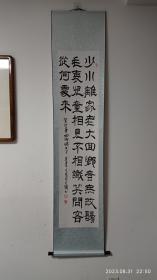 少小離家老大回鄉音無改鬢
毛衰兒童相見不相識笑問客
從何處來
2023.08.31 22:50